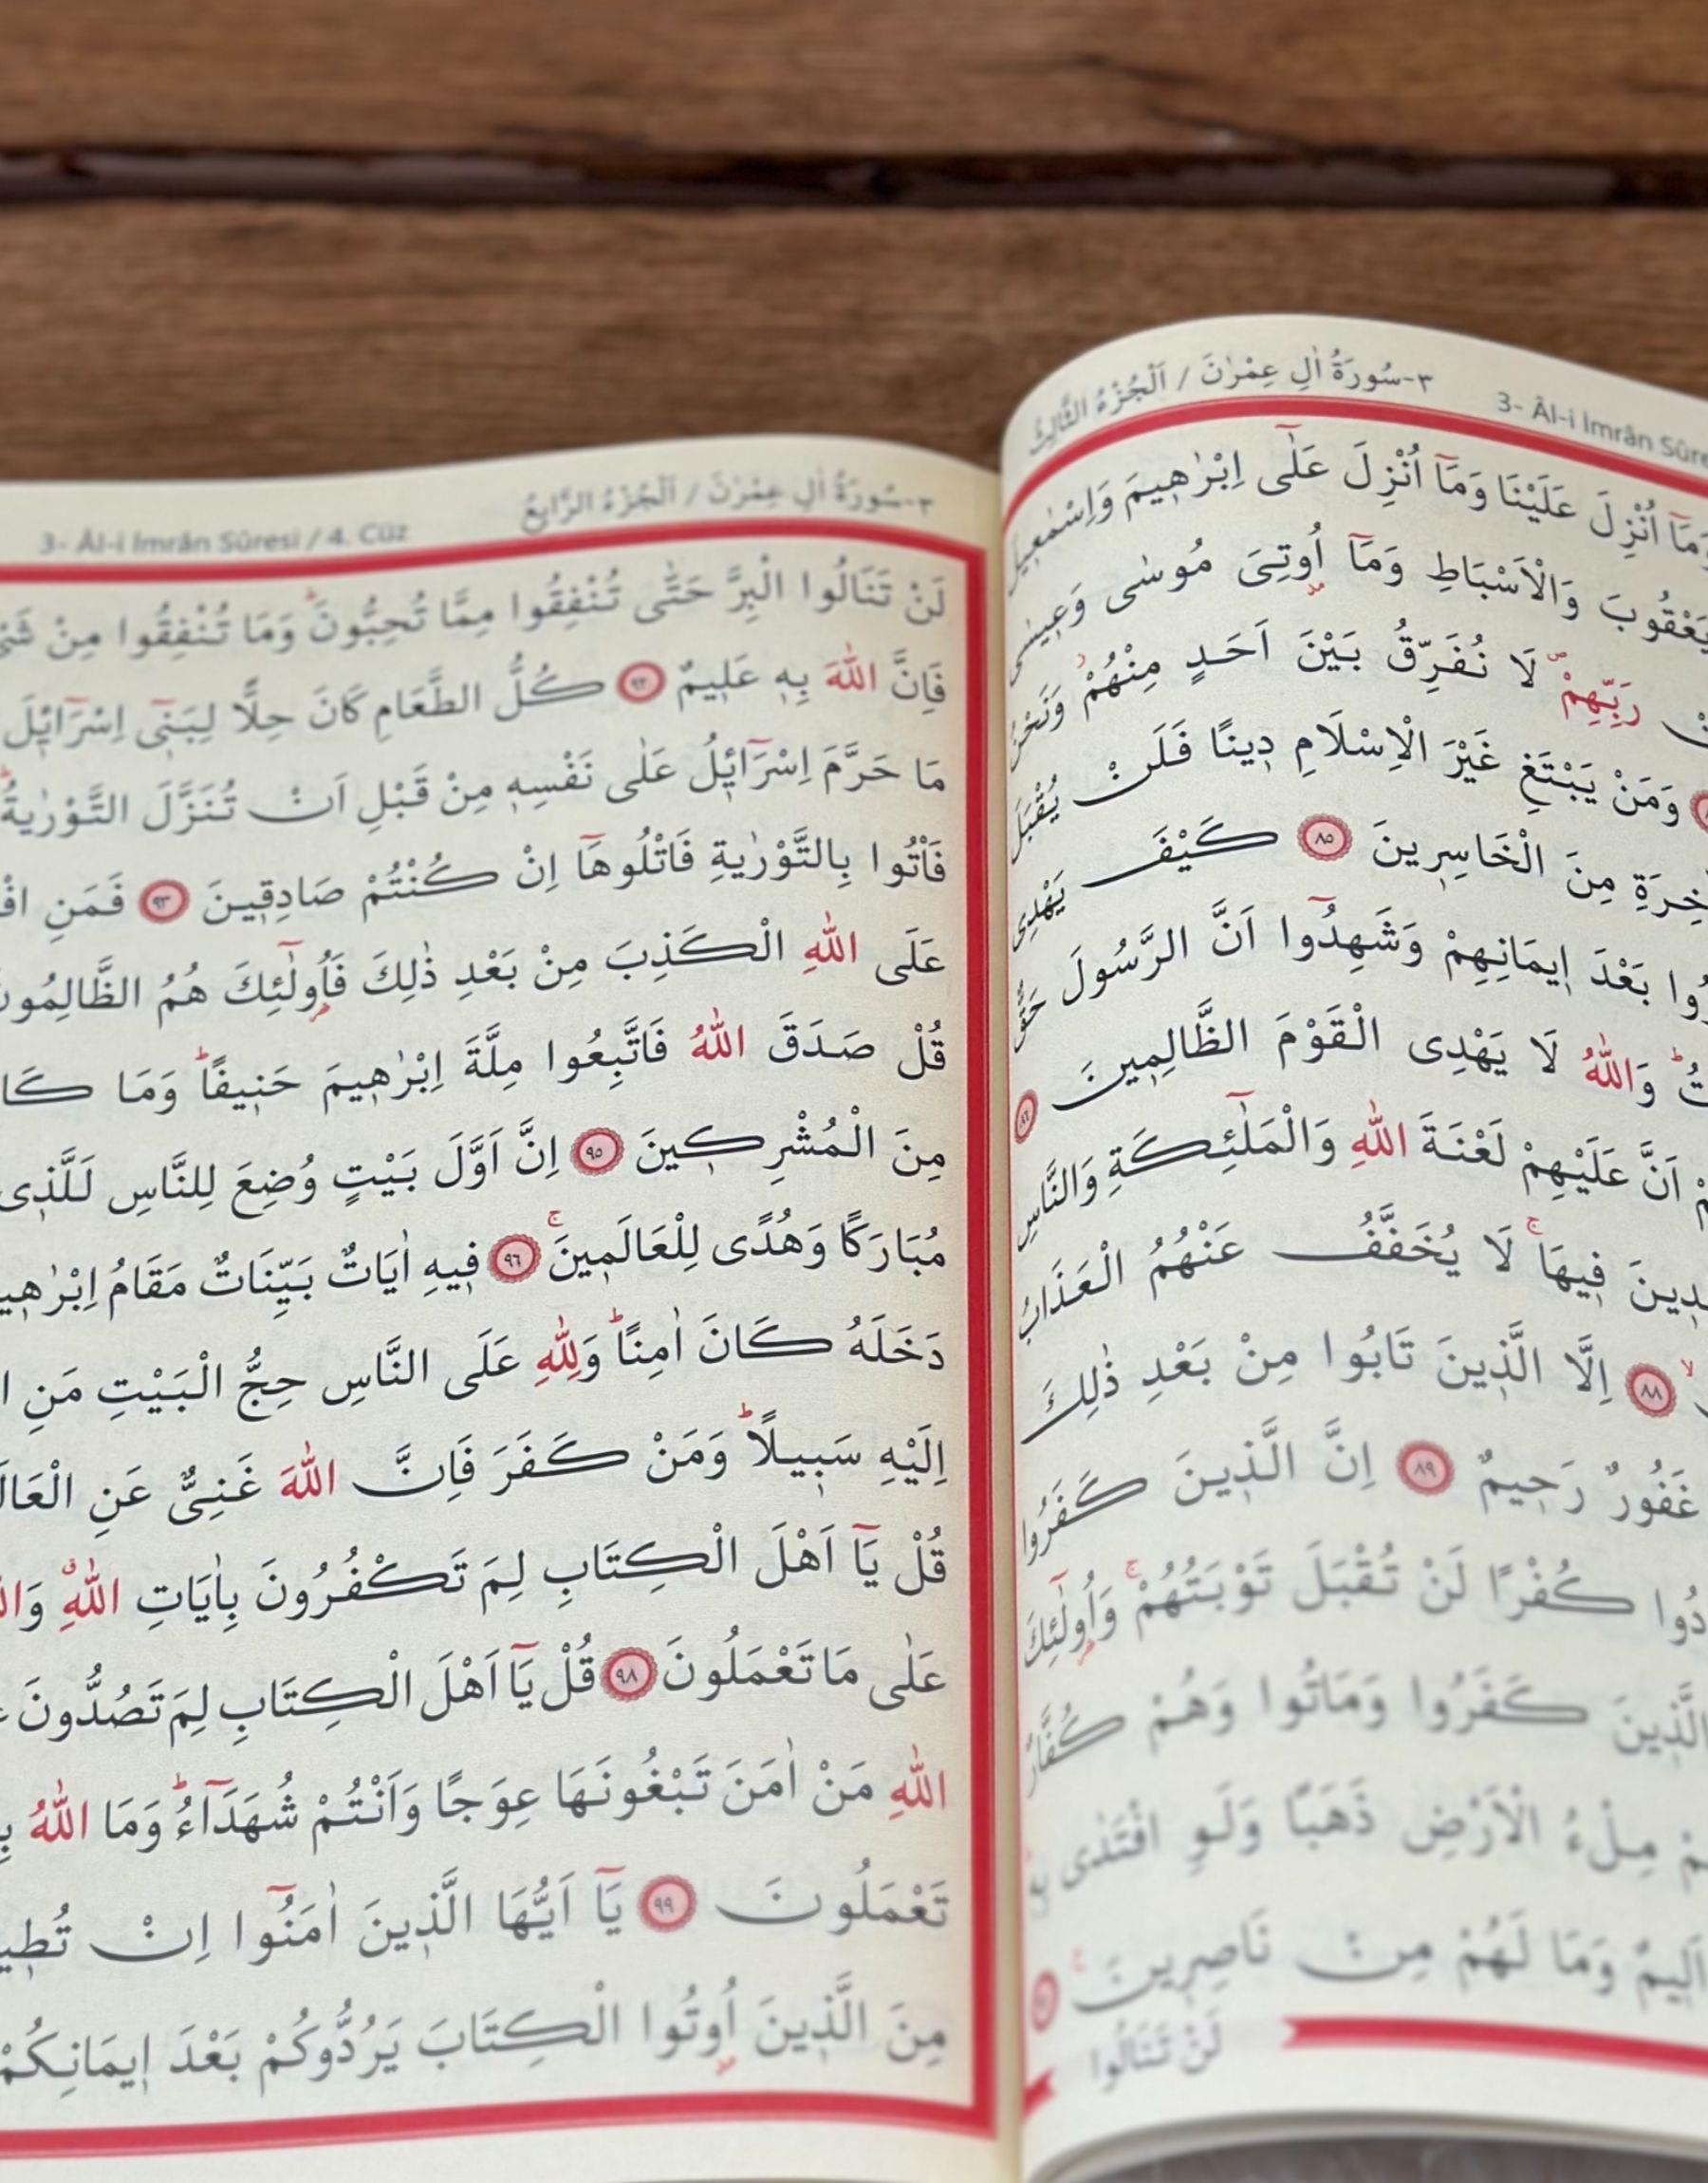 ٣-سُورَةُ اٰلِ عِمْرٰنَ / اَلْجُزْءُ الثَّالِثُ
3- Âl-i İmrân Sûre
وَمَٓا اُنْزِلَ عَلَيْنَا وَمَٓا اُنْزِلَ عَلٰٓى اِبْرٰه۪يمَ وَاِسْمٰع۪يلَ
يَعْقُوبَ وَالْاَسْبَاطِ وَمَٓا اُو۫تِيَ مُوسٰى وَع۪يسٰى
رَبِّهِمْۖ لَا نُفَرِّقُ بَيْنَ اَحَدٍ مِنْهُمْۘ وَنَحْنُ
وَمَنْ يَبْتَغِ غَيْرَ الْاِسْلَامِ د۪ينًا فَلَنْ يُقْبَلَ
مِنَ الْخَاسِر۪ينَ ٨٥ كَيْفَ يَهْدِي
بَعْدَ ا۪يمَانِهِمْ وَشَهِدُٓوا اَنَّ الرَّسُولَ حَقٌّ
وَاللّٰهُ لَا يَهْدِي الْقَوْمَ الظَّالِم۪ينَ ٨٦
اَنَّ عَلَيْهِمْ لَعْنَةَ اللّٰهِ وَالْمَلٰٓئِكَةِ وَالنَّاسِ
ف۪يهَاۚ لَا يُخَفَّفُ عَنْهُمُ الْعَذَابُ
٨٨ اِلَّا الَّذ۪ينَ تَابُوا مِنْ بَعْدِ ذٰلِكَ
غَفُورٌ رَح۪يمٌ ٨٩ اِنَّ الَّذ۪ينَ كَفَرُوا
كُفْرًا لَنْ تُقْبَلَ تَوْبَتُهُمْۚ وَاُو۬لٰٓئِكَ
الَّذ۪ينَ كَفَرُوا وَمَاتُوا وَهُمْ كُفَّارٌ
مِلْءُ الْاَرْضِ ذَهَبًا وَلَوِ افْتَدٰى
اَل۪يمٌ وَمَا لَهُمْ مِنْ نَاصِر۪ينَۚ
لَنْ تَنَالُوا
٣-سُورَةُ اٰلِ عِمْرٰنَ / اَلْجُزْءُ الرَّابِعُ
3- Âl-i İmrân Sûresi / 4. Cüz
لَنْ تَنَالُوا الْبِرَّ حَتّٰى تُنْفِقُوا مِمَّا تُحِبُّونَۜ وَمَا تُنْفِقُوا مِنْ
فَاِنَّ اللّٰهَ بِه۪ عَل۪يمٌ ٩٢ كُلُّ الطَّعَامِ كَانَ حِلًّا لِبَن۪ٓي اِسْرَٓائ۪لَ
مَا حَرَّمَ اِسْرَٓائ۪لُ عَلٰى نَفْسِه۪ مِنْ قَبْلِ اَنْ تُنَزَّلَ التَّوْرٰيةُۜ
فَأْتُوا بِالتَّوْرٰيةِ فَاتْلُوهَٓا اِنْ كُنْتُمْ صَادِق۪ينَ ٩٣ فَمَنِ
عَلَى اللّٰهِ الْكَذِبَ مِنْ بَعْدِ ذٰلِكَ فَاُو۬لٰٓئِكَ هُمُ الظَّالِمُونَ
قُلْ صَدَقَ اللّٰهُ فَاتَّبِعُوا مِلَّةَ اِبْرٰه۪يمَ حَن۪يفًاۜ وَمَا
مِنَ الْمُشْرِك۪ينَ ٩٥ اِنَّ اَوَّلَ بَيْتٍ وُضِعَ لِلنَّاسِ لَلَّذ۪ي
مُبَارَكًا وَهُدًى لِلْعَالَم۪ينَۚ ٩٦ ف۪يهِ اٰيَاتٌ بَيِّنَاتٌ مَقَامُ
دَخَلَهُ كَانَ اٰمِنًاۜ وَلِلّٰهِ عَلَى النَّاسِ حِجُّ الْبَيْتِ مَنِ
اِلَيْهِ سَب۪يلًاۜ وَمَنْ كَفَرَ فَاِنَّ اللّٰهَ غَنِيٌّ عَنِ
قُلْ يَٓا اَهْلَ الْكِتَابِ لِمَ تَكْفُرُونَ بِاٰيَاتِ اللّٰهِۗ
عَلٰى مَا تَعْمَلُونَ ٩٨ قُلْ يَٓا اَهْلَ الْكِتَابِ لِمَ تَصُدُّونَ
اللّٰهِ مَنْ اٰمَنَ تَبْغُونَهَا عِوَجًا وَاَنْتُمْ شُهَدَٓاءُۜ وَمَا اللّٰهُ
تَعْمَلُونَ ٩٩ يَٓا اَيُّهَا الَّذ۪ينَ اٰمَنُٓوا اِنْ
مِنَ الَّذ۪ينَ اُو۫تُوا الْكِتَابَ يَرُدُّوكُمْ بَعْدَ ا۪يمَانِكُمْ